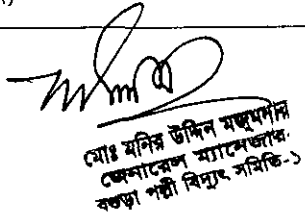 মোঃ মনির উদ্দিন মজুমদার
জেনারেল ম্যানেজার.
বগুড়া পল্লী বিদ্যুৎ সমিতি-১